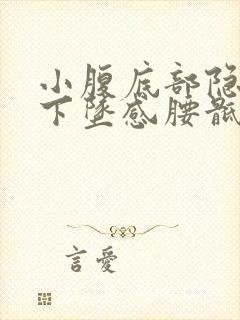 小腹底部隐
下坠感腰骶
言愛